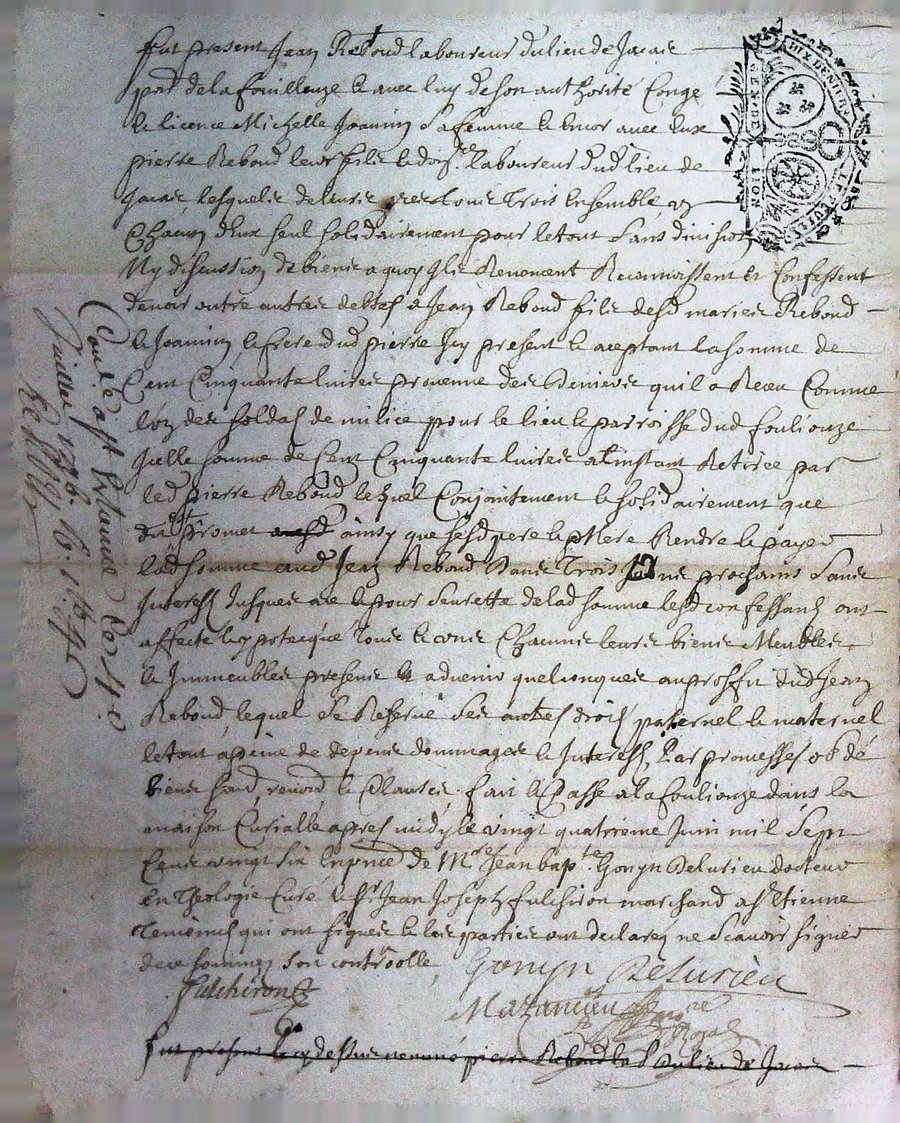 Fut present Jean Reboud laboureur du lieu de Javaie
parr de la fouillouze & avec luy de son authorité Congé
& licence Michelle Joannin sa femme & encor avec eux
pierre Reboud leur fils & laboureur dud lieu de
Javaie, lesquels de leurs grez tous Trois Ensemble,
Chacun d'eux seul solidairement pour le tout sans division
Ny discussion de biens a quoy Ils Renoncent Reconnoissent Et Confessent
devoir outre autres debtes a Jean Reboud fils desd mariés Reboud
& Joannin, & frere dud pierre Icy present & aceptant la somme de
Cent Cinquante livres provenue des deniers qu'il a Receu Comme
l'un des soldats de milice pour le lieu & parroisse dud fouliouze
quelle somme de Cent Cinquante livres a l'instant Retirée par
led pierre Reboud lequel Conjointement & solidairement que
dit est promet ainsy que sesd pere & mere Rendre & payer
lad somme aud Jean Reboud dans Trois prochains sans
Interest Jusques a & pour seurette de lad somme lesd confessants ont
affecté hypotecqué tous & uns Chacuns leurs biens Meubles
& Immeubles presens & advenir quelconques au proffit dud Jean
Reboud, lequel se Reserve ses autres droits paternel & maternel
le tout a peine de depens dommages & Interests, Par promesses ob de
biens renon & Clauses. fait & Passé a la fouliouze dans la
maison Curialle apres midy le vingt quatrieme Juin mil Sept
Cens vingt six En pnce de Mre Jean bapte Gonyn Delurieu docteur
En Theologie Curé & Sr Jean Joseph fulchiron marchand a St Etienne
Temoins qui ont signés & les parties ont declarez ne scavoir signer
de ce sommez soit controolle
Gonyn Delurieu
fulchiron
Mazancieu
nore Royal
Fut present le cy dessus nommé pierre Reboud lab du lieu de Javaie
Con le a St Etienne le 4e
Juillet 1726.
LION
DIX DENIERS
LE FEUILLET